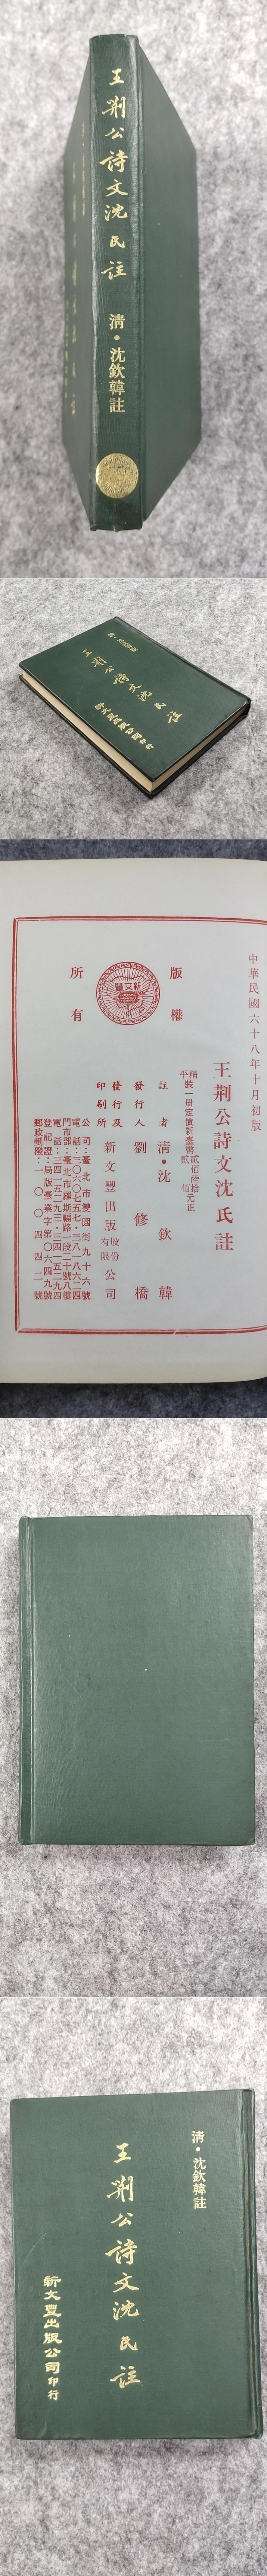 王荊公詩文沈氏註
清・沈欽韓註
清・沈欽韓註
王荊公詩文沈氏註
新文豐出版公司印行
中華民國六十八年十月初版
王荊公詩文沈氏註
精裝一册定價新臺幣貳佰陸拾元正
平
貳佰
註者 清・沈欽韓
發行人 劉修橋
發行及印刷所 新文豐出版股份有限公司
公司:臺北市雙園街九十六號
電話:三〇六〇七五七・三八一八六二四
門市部:臺北市羅斯福路一段二十號八樓
電話:三四一五二九三・三四一五二九四
登記證:局版臺業字第〇六四九號
郵政劃撥:一〇〇四四二號
版權所有
新文豐
清・沈欽韓註
王荊公詩文沈氏註
新文豐出版公司印行